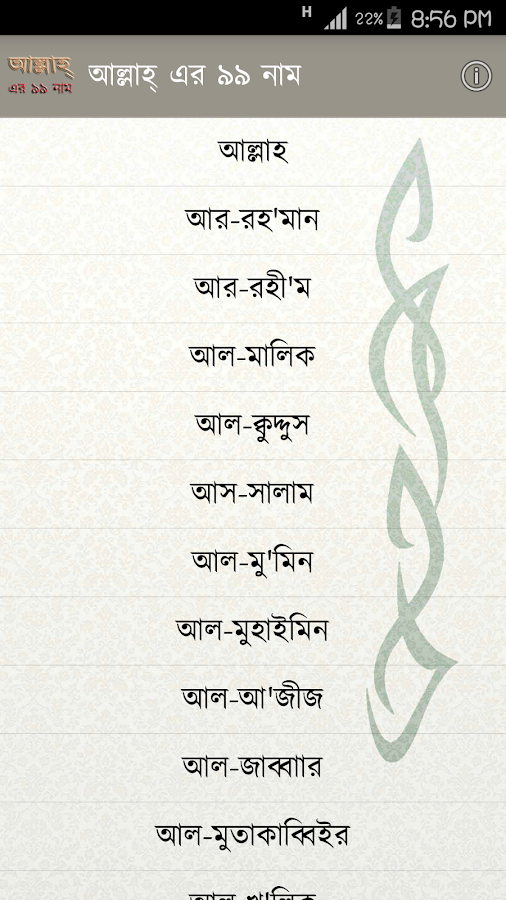 H 22% 8:56 PM
আল্লাহ্
এর ৯৯ নাম
আল্লাহ্ এর ৯৯ নাম
আল্লাহ
আর-রহ'মান
আর-রহী'ম
আল-মালিক
আল-ক্বুদ্দুস
আস-সালাম
আল-মু'মিন
আল-মুহাইমিন
আল-আ'জীজ
আল-জাব্বাার
আল-মুতাকাব্বিইর